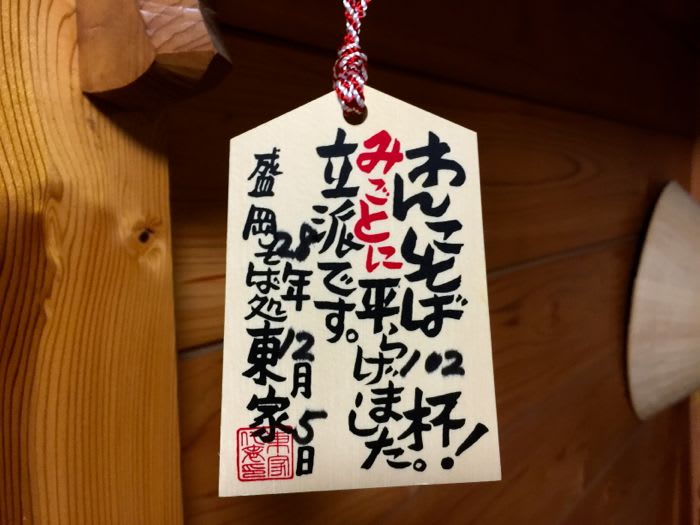 わんこそば102杯!
みごとに平らげました。
立派です。
28年12月5日
盛岡そば処東家
東家